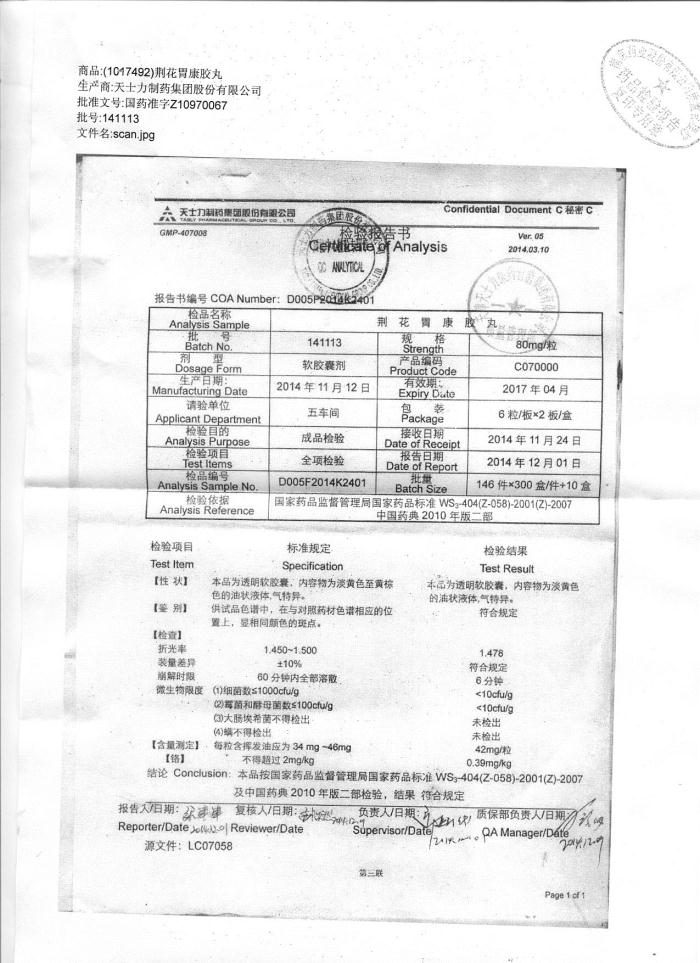 商品:(1017492)荆花胃康胶丸
生产商:天士力制药集团股份有限公司
批准文号:国药准字Z10970067
批号:141113
文件名:scan.jpg
天士力制药集团股份有限公司
TASLY PHARMACEUTICAL GROUP CO., LTD.
Confidential Document C 秘密 C
GMP-407008
检验报告书
Ver. 05
Certificate of Analysis
2014.03.10
QC ANALYTICAL
报告书编号 COA Number: D005P2014K2401
检品名称 Analysis Sample 荆花胃康胶丸
批号 Batch No. 141113 规格 Strength 80mg/粒
剂型 Dosage Form 软胶囊剂 产品编码 Product Code C070000
生产日期: Manufacturing Date 2014年11月12日 有效期: Expiry Date 2017年04月
请验单位 Applicant Department 五车间 包装 Package 6粒/板×2板/盒
检验目的 Analysis Purpose 成品检验 接收日期 Date of Receipt 2014年11月24日
检验项目 Test Items 全项检验 报告日期 Date of Report 2014年12月01日
检品编号 Analysis Sample No. D005F2014K2401 批量 Batch Size 146件×300盒/件+10盒
检验依据 Analysis Reference 国家药品监督管理局国家药品标准 WS₃-404(Z-058)-2001(Z)-2007
中国药典 2010年版二部
检验项目 标准规定 检验结果
Test Item Specification Test Result
【性状】 本品为透明软胶囊，内容物为淡黄色至黄棕 本品为透明软胶囊，内容物为淡黄色
色的油状液体,气特异。 的油状液体,气特异。
【鉴别】 供试品色谱中，在与对照药材色谱相应的位 符合规定
置上，显相同颜色的斑点。
【检查】
折光率 1.450~1.500 1.478
装量差异 ±10% 符合规定
崩解时限 60分钟内全部溶散 6分钟
微生物限度 ⑴细菌数≤1000cfu/g <10cfu/g
⑵霉菌和酵母菌数≤100cfu/g <10cfu/g
⑶大肠埃希菌不得检出 未检出
⑷螨不得检出 未检出
【含量测定】 每粒含挥发油应为 34 mg ~46mg 42mg/粒
【铬】 不得超过 2mg/kg 0.39mg/kg
结论 Conclusion: 本品按国家药品监督管理局国家药品标准 WS₃-404(Z-058)-2001(Z)-2007
及中国药典 2010年版二部检验，结果 符合规定
报告人/日期: 复核人/日期: 负责人/日期: 质保部负责人/日期:
Reporter/Date 2014.12.01 Reviewer/Date Supervisor/Date QA Manager/Date
2014.12.09
源文件: LC07058
第三联
Page 1 of 1